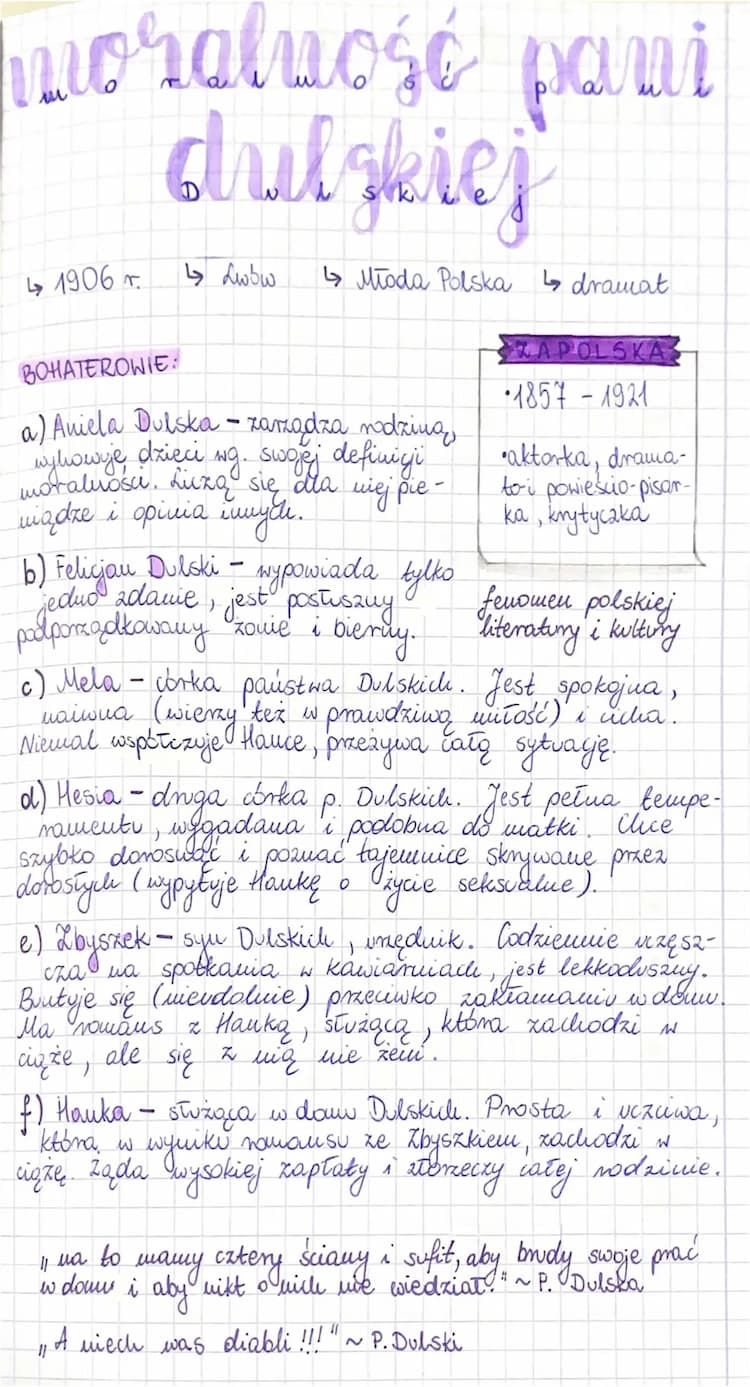 moralność pani
moralność pani
dulskiej
Dulskiej
↳ 1906 r. ↳ Lwów ↳ Młoda Polska ↳ dramat
BOHATEROWIE:
a) Aniela Dulska – zarządza rodziną,
wyhowuje dzieci wg. swojej definicji
moralności. Liczą się dla niej pie-
niądze i opinia innych.
ZAPOLSKA
•1857 – 1921
•aktorka, drama-
to-i powieścio-pisar-
ka, krytyczka
b) Felicjan Dulski – wypowiada tylko
jedno zdanie, jest posłuszny
podporządkowany żonie i bierny.
fenomen polskiej
literatury i kultury
c) Mela – córka państwa Dulskich. Jest spokojna,
naiwna (wierzy też w prawdziwą miłość) i cicha.
Niemal współczuje Hance, przeżywa całą sytuację.
d) Hesia – druga córka p. Dulskich. Jest pełna tempe-
ramentu, wygadana i podobna do matki. Chce
szybko dorosnąć i poznać tajemnice skrywane przez
dorosłych (wypytuje Hankę o życie seksualne).
e) Zbyszek – syn Dulskich, urzędnik. Codziennie uczęsz-
cza na spotkania w kawiarniach, jest lekkoduszny.
Buntuje się (nieudolnie) przeciwko zakłamaniu w domu.
Ma romans z Hanką, służącą, która zachodzi w
ciąże, ale się z nią nie żeni.
f) Hanka – służąca w domu Dulskich. Prosta i uczciwa,
która, w wyniku romansu ze Zbyszkiem, zachodzi w
ciążę. Żąda wysokiej zapłaty i złorzeczy całej rodzinie.
„na to mamy cztery ściany i sufit, aby brudy swoje prać
w domu i aby nikt o nich nie wiedział." ~ P. Dulska
„A niech was diabli!!!" ~ P. Dulski